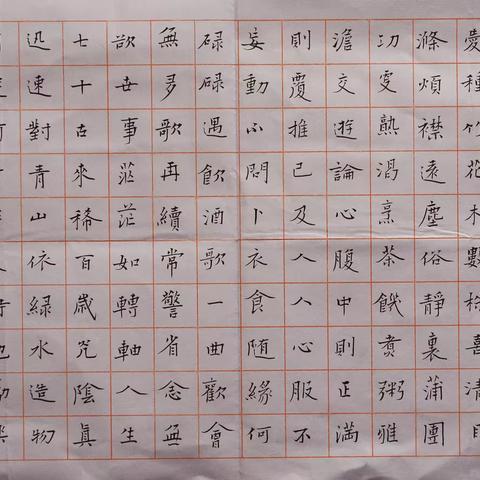 愛種竹花木數株喜清
滌煩襟遠塵俗靜裏蒲團
功更熟渴烹茶饑煮粥雅
澹交遊論心腹中則正滿
則覆推己及人人心服不
妄動不問卜衣食随緣何
碌碌遇飲酒歌一曲歡會
無多歌再續常警省念無
欲世事茫茫如轉軸人生
七十古來稀百歲光陰真
迅速對青山依綠水造物